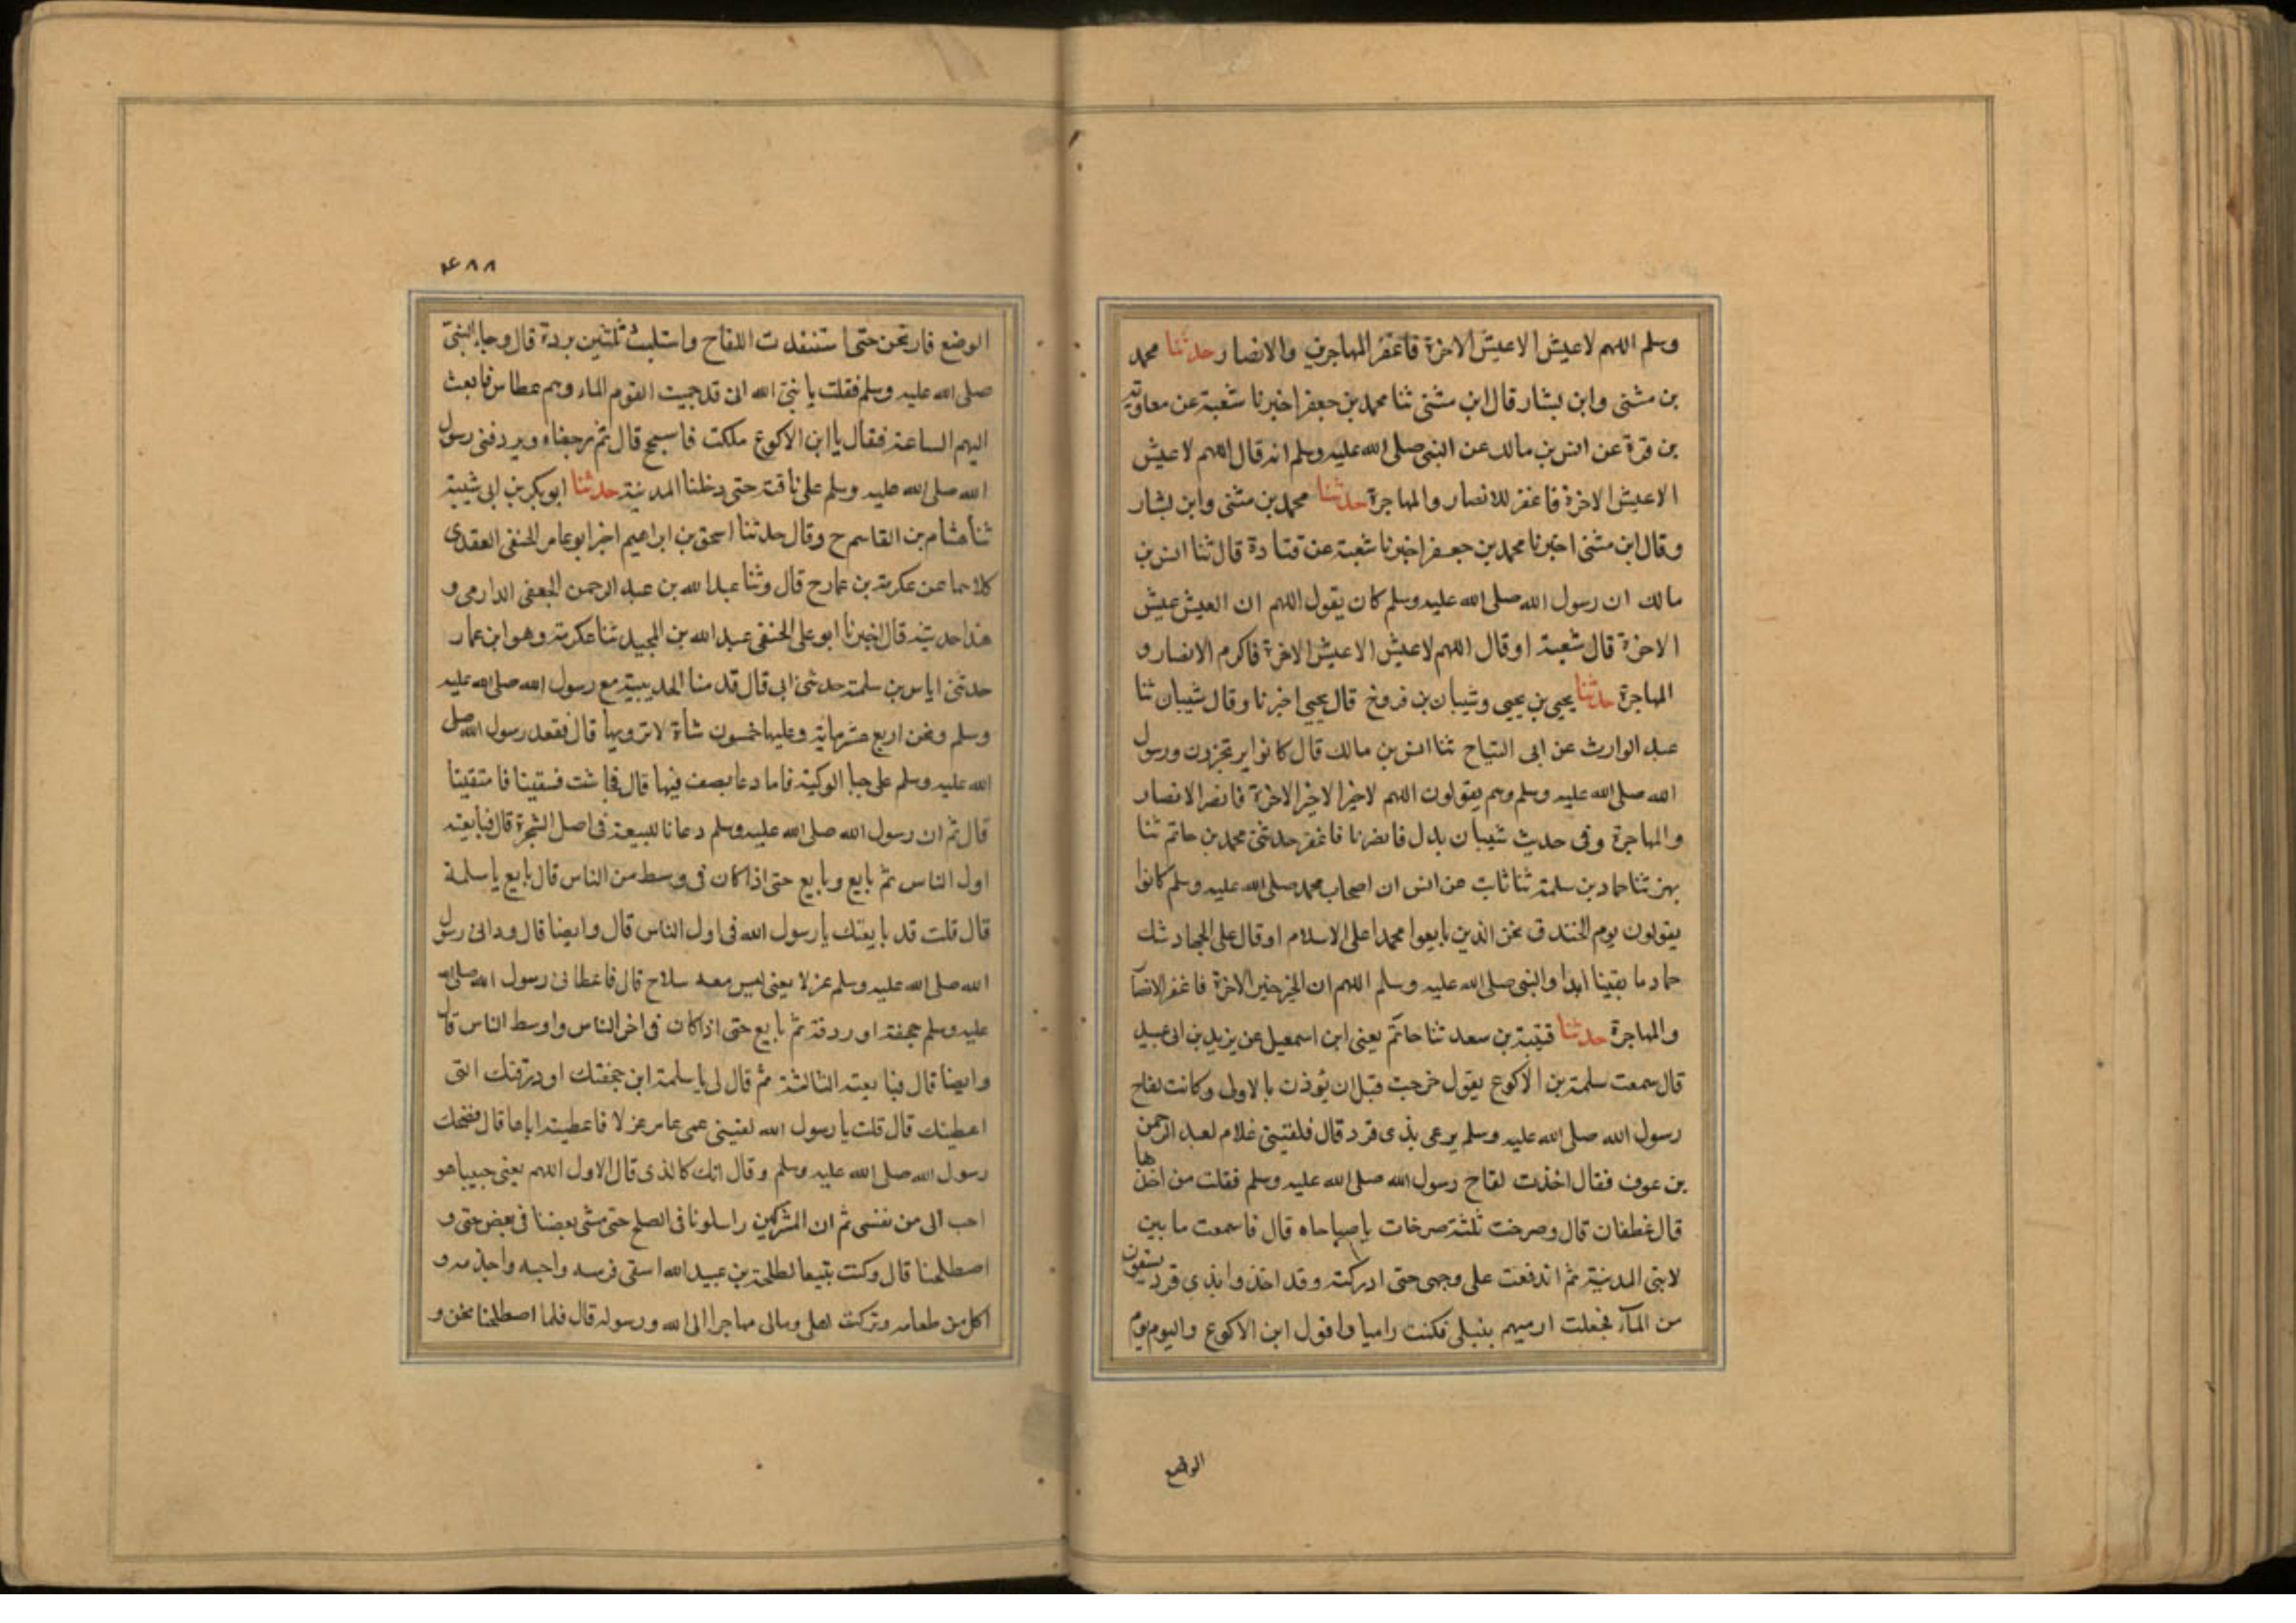 وسلم اللهم لا عيش الا عيش الاخرة فاغفر المهاجرين والانصار حدثنا محمد
بن مثنى وابن بشار قال ابن مثنى ثنا محمد بن جعفر اخبرنا شعبة عن معاوية
بن قرة عن انس بن مالك عن النبي صلى الله عليه وسلم انه قال اللهم لا عيش
الا عيش الاخرة فاغفر للانصار والمهاجرة حدثنا محمد بن مثنى وابن بشار
وقال ابن مثنى اخبرنا محمد بن جعفر اخبرنا شعبة عن قتادة قال ثنا انس بن
مالك ان رسول الله صلى الله عليه وسلم كان يقول اللهم ان العيش عيش
الاخرة قال شعبة او قال اللهم لا عيش الا عيش الاخرة فاكرم الانصار و
المهاجرة حدثنا يحيى بن يحيى وشيبان بن فروخ قال يحيى اخبرنا وقال شيبان ثنا
عبد الوارث عن ابى التياح ثنا انس بن مالك قال كانوا يرتجزون ورسول
الله صلى الله عليه وسلم وهم يقولون اللهم لا خير الا خير الاخرة فانصر الانصار
والمهاجرة وفى حديث شيبان بدل فانصرنا فاغفر حدثنى محمد بن حاتم ثنا
بهز ثنا حماد بن سلمة ثنا ثابت عن انس ان اصحاب محمد صلى الله عليه وسلم كانوا
يقولون يوم الخندق نحن الذين بايعوا محمدا على الاسلام او قال على الجهاد شك
حماد ما بقينا ابدا والنبى صلى الله عليه وسلم اللهم ان الخير خير الاخرة فاغفر الانصا
والمهاجرة حدثنا قتيبة بن سعد ثنا حاتم يعنى ابن اسمعيل عن يزيد بن ابى عبيد
قال سمعت سلمة بن الاكوع يقول خرجت قبل ان يوذن بالاولى وكانت لقاح
رسول الله صلى الله عليه وسلم يرعى بذى قرد قال فلقينى غلام لعبد الرحمن
بن عوف فقال اخذت لقاح رسول الله صلى الله عليه وسلم فقلت من اخذها
قال غطفان قال وصرخت ثلثة صرخات يا صباحاه قال فاسمعت ما بين
لابتى المدينة ثم اندفعت على وجهى حتى ادركته وقد اخذوا بذى قرد يسقون
من الماء فجعلت ارميهم بنبلى فكنت راميا واقول ابن الاكوع واليوم يوم
الوضع
٤٨٨
الوضع فارتحن حتى استنفدت اللقاح واستلبت ثلثين بردة قال وجاء النبى
صلى الله عليه وسلم فقلت يا نبى الله انى قد حميت القوم الماء وهم عطاس فابعث
اليهم الساعة فقال يا ابن الاكوع ملكت فاسجح قال ثم رجعناه ويردفنى رسول
الله صلى الله عليه وسلم على ناقته حتى دخلنا المدينة حدثنا ابو بكر بن ابى شيبة
ثنا هشام بن القاسم ح وقال حدثنا اسحق بن ابراهيم اخبر ابو عامر الحنفى العقدى
كلاهما عن عكرمة بن عمار ح قال وثنا عبد الله بن عبد الرحمن الجعفى الدارمى و
هذا حديثه قال اخبرنا ابو على الحنفى عبد الله بن المجيد ثنا عكرمة وهو ابن عمار
حدثنى اياس بن سلمة حدثنى ابى قال قدمنا الحديبية مع رسول الله صلى الله عليه
وسلم ونحن اربع عشرماية وعليها خمسون شاة لا ترويها قال فقعد رسول الله صلى
الله عليه وسلم على جبا الركية فاما دعا بصف فيها قال فجاشت فسقينا فاستقينا
قال ثم ان رسول الله صلى الله عليه وسلم دعانا للبيعة فى اصل الشجرة قال فبايعته
اول الناس ثم بايع وبايع حتى اذا كان فى وسط من الناس قال بايع يا سلمة
قال قلت قد بايعتك يا رسول الله فى اول الناس قال وايضا قال ورانى رسول
الله صلى الله عليه وسلم عزلا يعنى ليس معه سلاح قال فاعطانى رسول الله صلى الله
عليه وسلم جحفة او ردفة ثم بايع حتى اذا كان فى اخر الناس واوسط الناس قال
وايضا قال فبايعته الثالثة ثم قال لى يا سلمة اين جحفتك او درقتك التى
اعطيتك قال قلت يا رسول الله لقينى عمى عامر عزلا فاعطيته اياها قال فضحك
رسول الله صلى الله عليه وسلم وقال انك كالذى قال الاول اللهم يعنى حبيبا هو
احب الى من نفسى ثم ان المشركين راسلونا فى الصلح حتى مشى بعضنا فى بعض حتى و
اصطلحنا قال وكنت تبيعا لطلحة بن عبيد الله اسقى فرسه واحبه واخذمه و
اكل من طعامه وتركت اهلى ومالى مهاجرا الى الله ورسوله قال فلما اصطلحنا نحن و